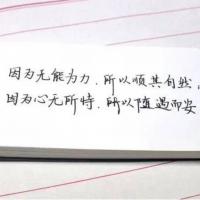 因为无能为力,所以顺其自然,
因为心无所恃,所以随遇而安